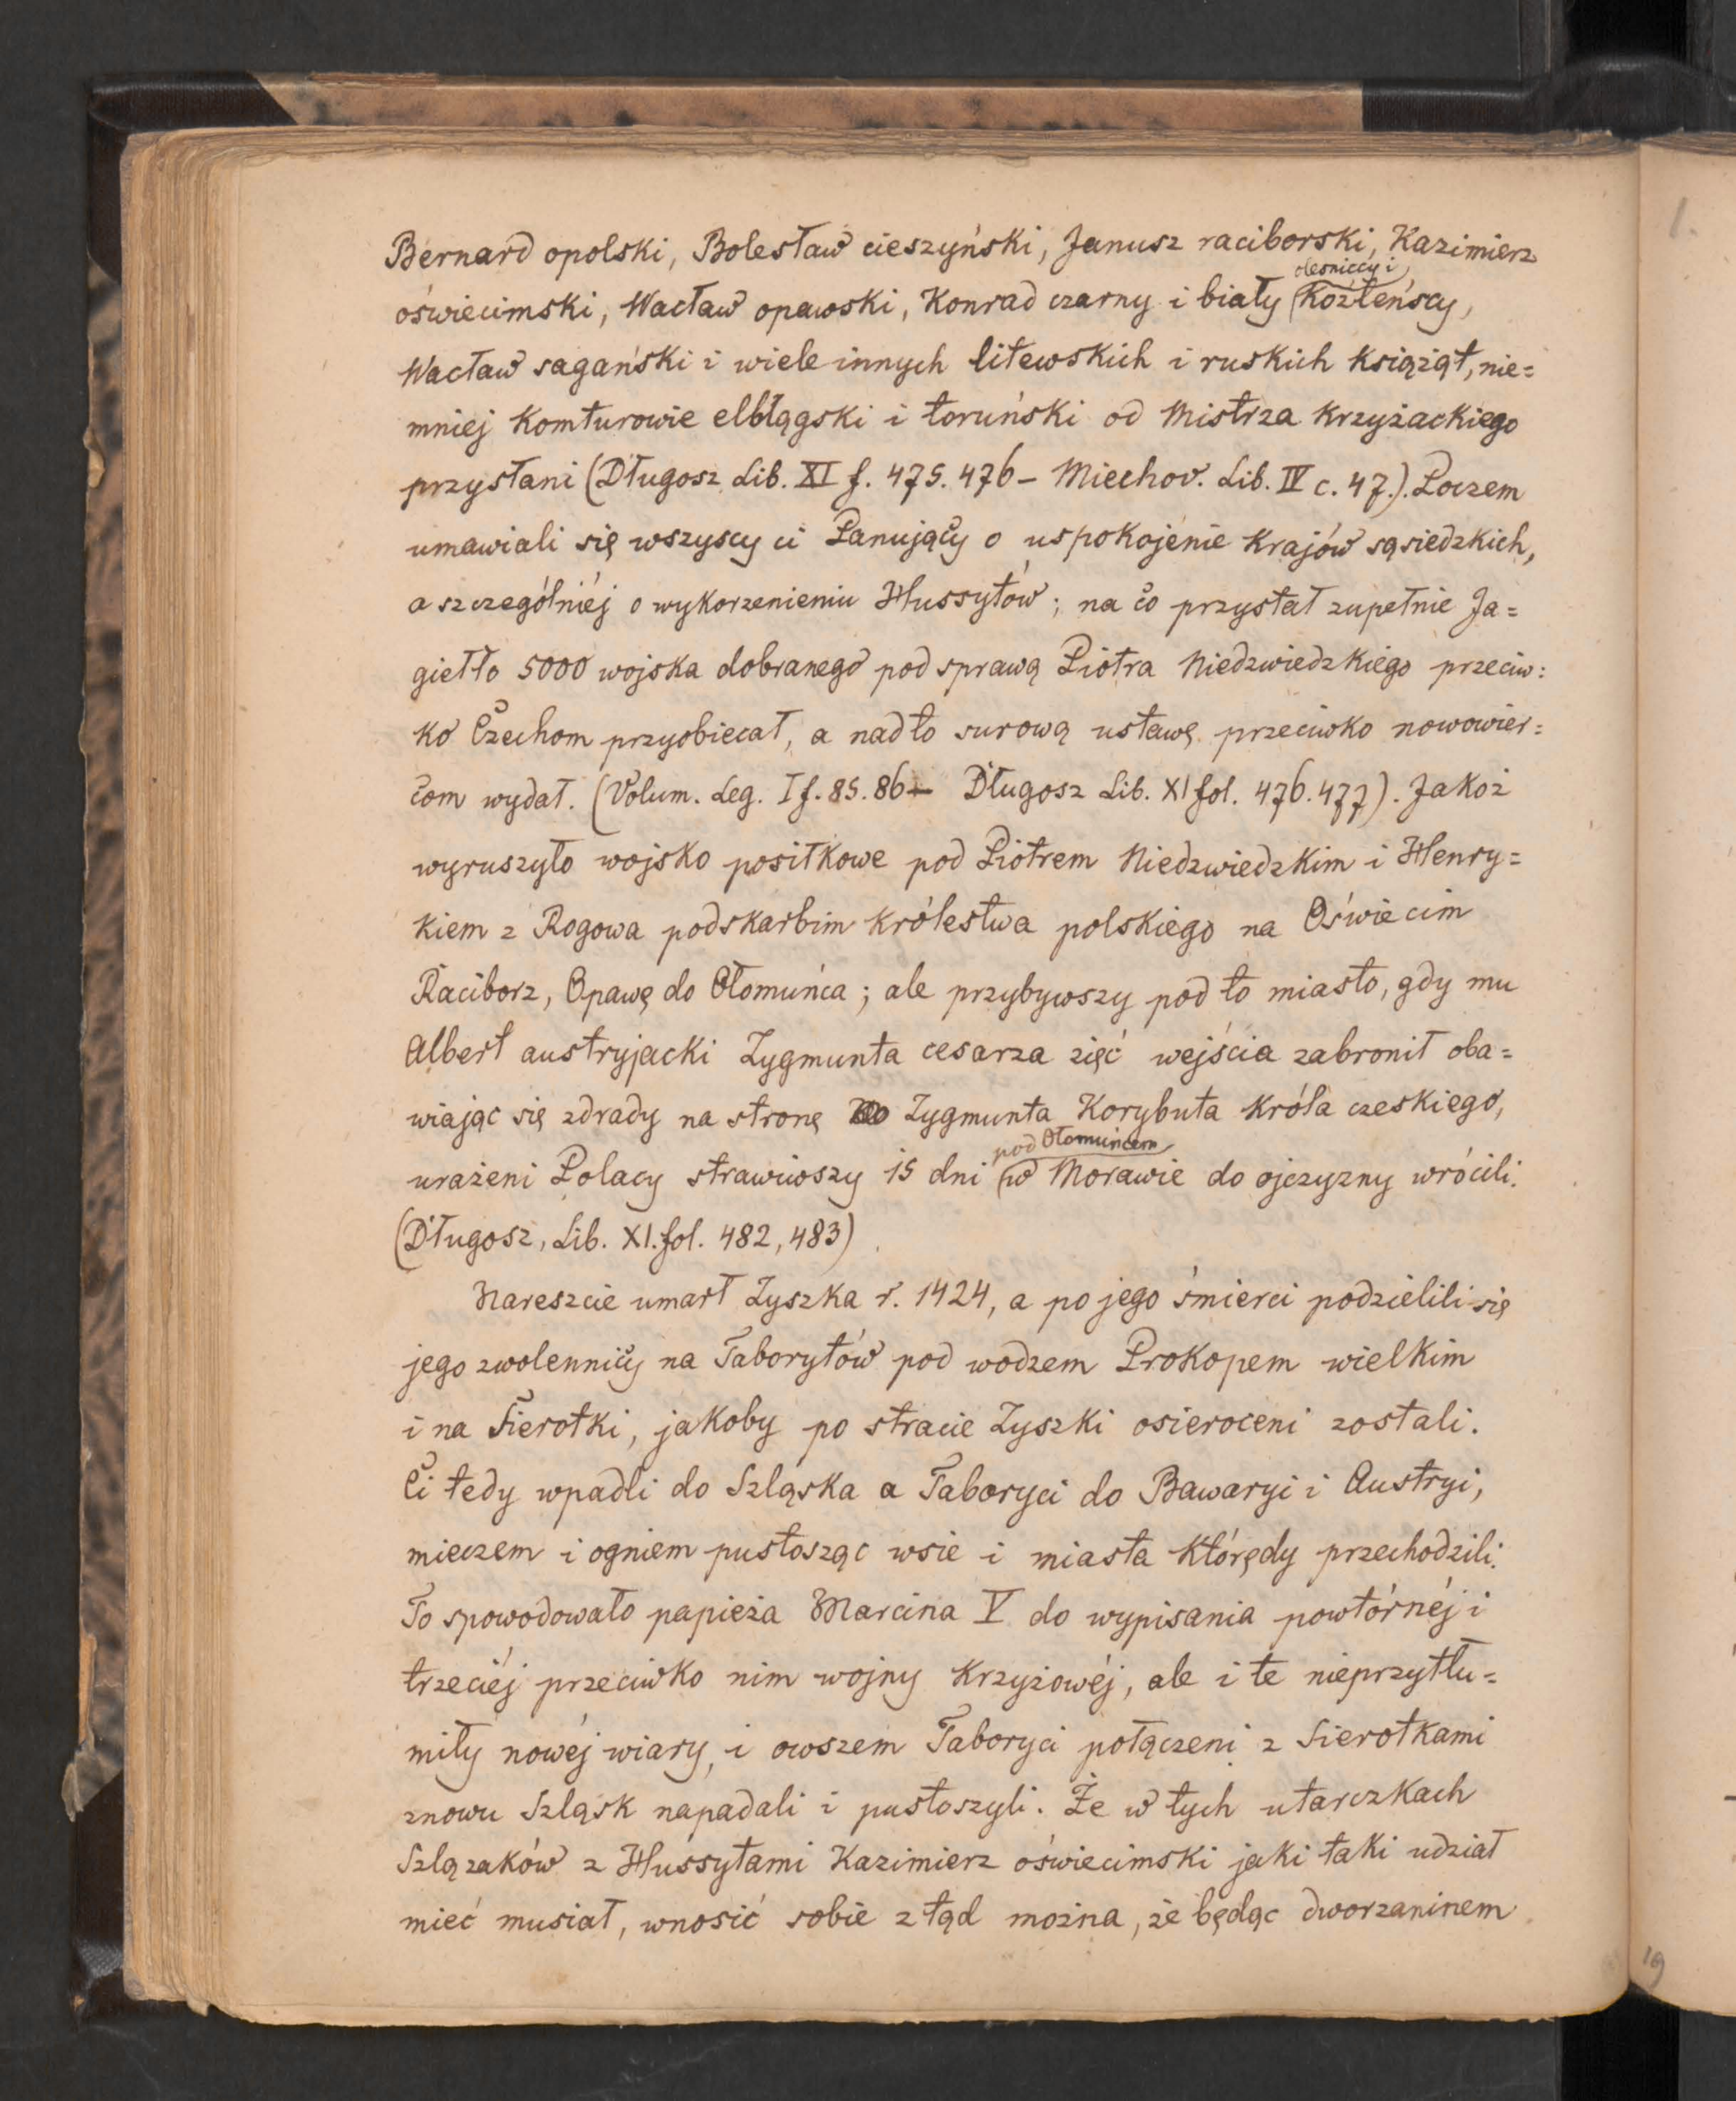 Bernard opolski, Bolesław cieszyński, Janusz raciborski, Kazimierz
oleśniccy i
oświecimski, Wacław opawski, Konrad czarny i biały Koźleńscy,
Wacław sagański i wiele innych litewskich i ruskich książąt, nie=
mniej Komturowie elbłągski i toruński od Mistrza Krzyżackiego
przysłani (Długosz Lib. XI f. 475. 476 – Miechov. Lib. IV c. 47.). Poczem
umawiali się wszyscy ci Panujący o uspokojenie Krajów sąsiedzkich,
a szczególniéj o wykorzenieniu Hussytów; na co przystał zupełnie Ja=
giełło 5000 wojska dobranego pod sprawą Piotra Niedzwiedzkiego przeciw=
ko Czechom przyobiecał, a nadto surową ustawę przeciwko nowowier=
com wydał. (Volum. Leg. I f. 85. 86 – Długosz Lib. XI fol. 476. 477). Jakoż
wyruszyło wojsko posiłkowe pod Piotrem Niedzwiedzkim i Henry=
kiem z Rogowa podskarbim Królestwa polskiego na Oświecim
Racibórz, Opawę do Ołomuńca; ale przybywszy pod to miasto, gdy mu
Albert austryjacki Zygmunta cesarza zięć wejścia zabronił oba=
wiając się zdrady na stronę Zygmunta Korybuta Króla czeskiego,
pod Ołomuńcem
urażeni Polacy strawiwszy 15 dni w Morawie do ojczyzny wrócili.
(Długosz, Lib. XI. fol. 482, 483)
Nareszcie umarł Zyszka r. 1424, a po jego śmierci podzielili się
jego zwolennicy na Taborytów pod wodzem Prokopem wielkim
i na Sierotki, jakoby po stracie Zyszki osieroceni zostali.
Ci tedy wpadli do Szląska a Taboryci do Bawaryi i Austryi,
mieczem i ogniem pustosząc wsie i miasta Którędy przechodzili.
To spowodowało papieża Marcina V do wypisania powtórnéj i
trzeciéj przeciwko nim wojny Krzyżowéj, ale i te nieprzytłu=
miły nowéj wiary, i owszem Taboryci połączeni z Sierotkami
znowu Szląsk napadali i pustoszyli. Że w tych utarczkach
Szlązaków z Hussytami Kazimierz oświecimski jaki taki udział
mieć musiał, wnosić sobie ztąd można, że będąc dworzaninem
1.
19